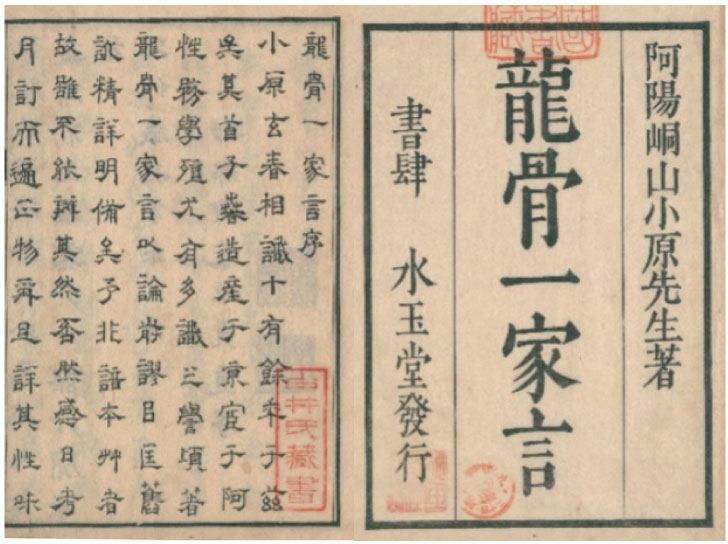 阿陽峒山小原先生著
龍骨一家言
書肆 水玉堂發行
龍骨一家言序
小原玄春相識十有餘年于茲
造産于東宦于阿
性務學殫尤有多識之譽頃著
龍骨一家言以論謬㠯匡舊
說精詳明備矣予非諳本艸者
故雖不能辨其然否然感日考
月訂而遍正物且詳其性味
山井氏藏書